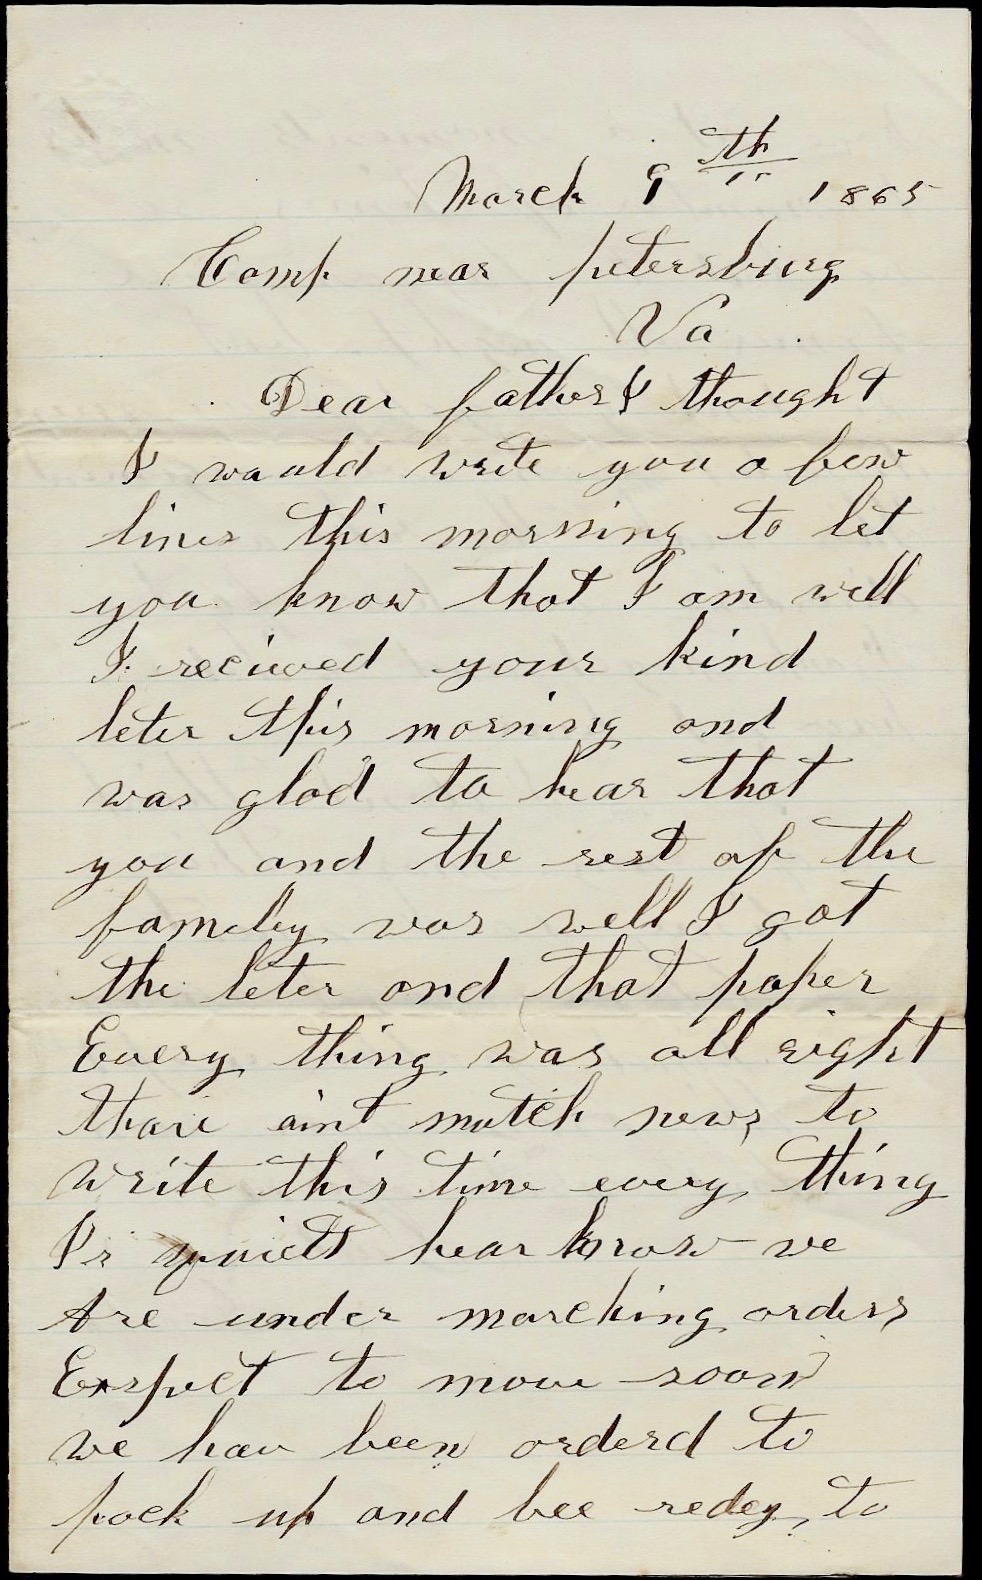 March 9th 1865
Camp near petersburg
Va.
Dear father I thought
I would write you a few
lines this morning to let
you know that I am well
I recieved your kind
leter this morning and
was glad to hear that
you and the rest of the
familey was well I got
the leter and that paper
Every thing was all right
thare aint mutch news to
write this time every thing
Is quiett hear know we
Are under marching orders
Exspect to move soon
we hav been orderd to
pack up and bee redey to